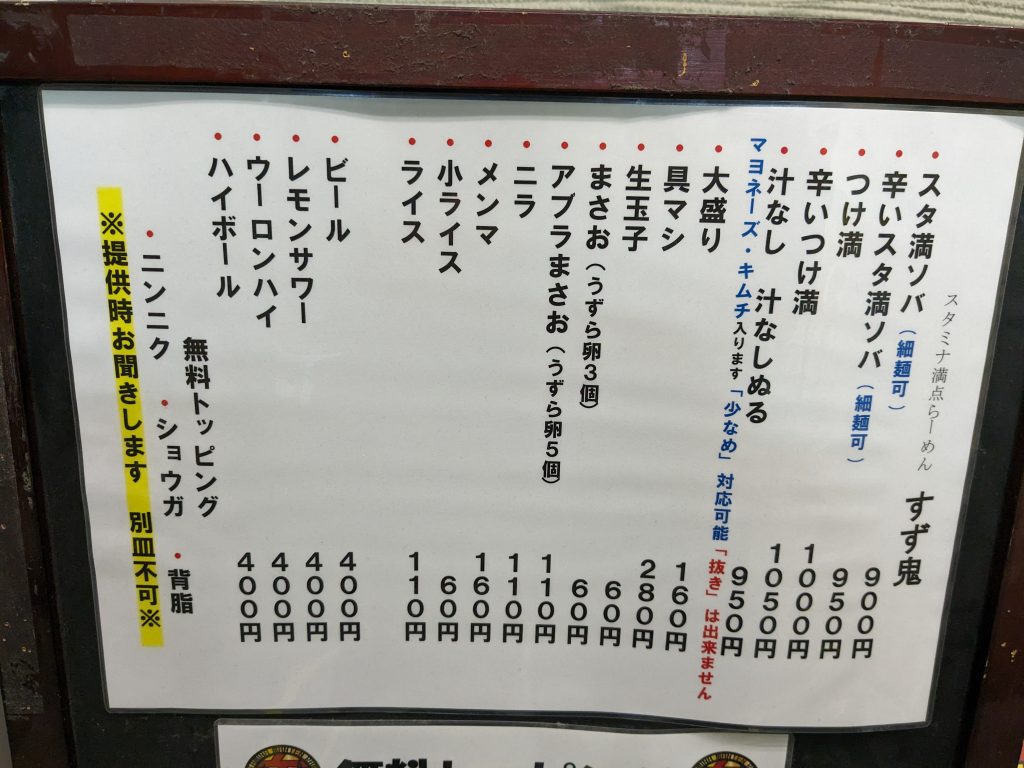 スタミナ満点らーめん すず鬼
・スタ満ソバ（細麺可） 900円
・辛いスタ満ソバ（細麺可） 950円
・つけ満 1000円
・辛いつけ満 1050円
・汁なし 汁なしぬる 950円
マヨネーズ・キムチ入ります「少なめ」対応可能「抜き」は出来ません
・大盛り 160円
・具マシ 280円
・生玉子 60円
・まさお（うずら卵3個） 60円
・アブラまさお（うずら卵5個） 110円
・ニラ 110円
・メンマ 160円
・小ライス 60円
・ライス 110円
・ビール 400円
・レモンサワー 400円
・ウーロンハイ 400円
・ハイボール 400円
無料トッピング
・ニンニク ・ショウガ ・背脂
※提供時お聞きします 別皿不可※